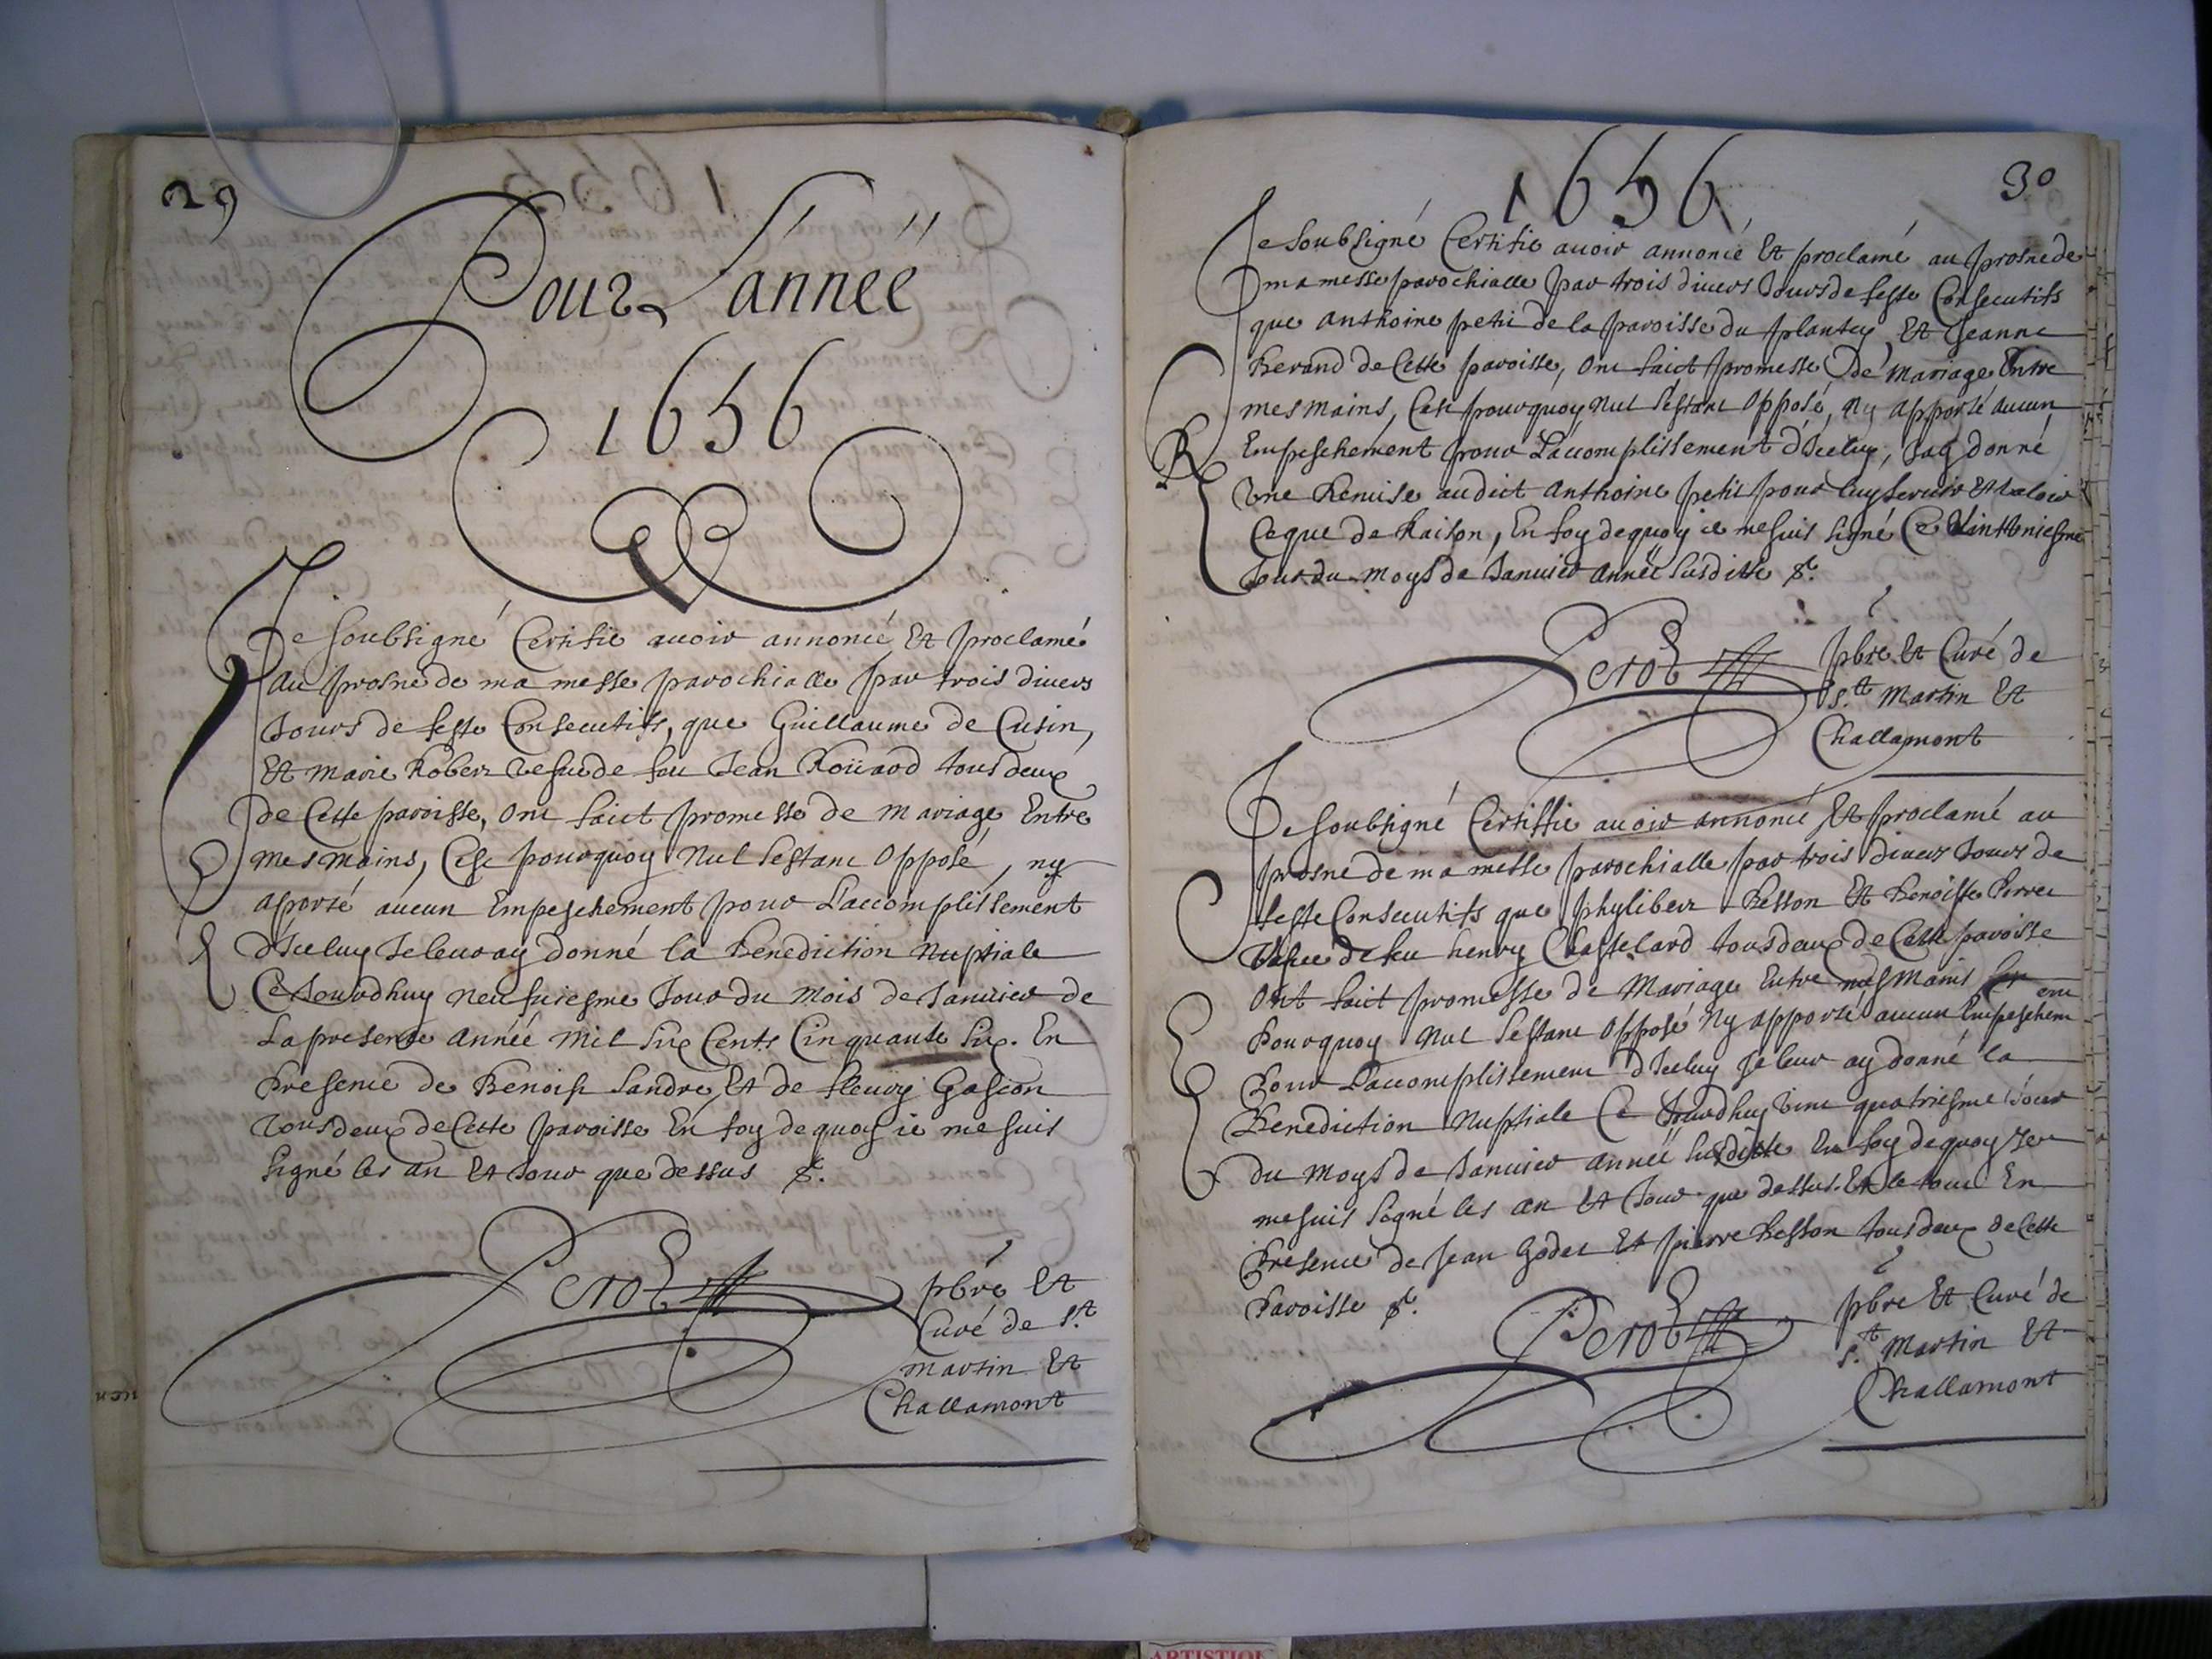 29
Pour L'année
1656
Je soubsigné Certifie auoir annoncé Et proclamé
Au prosne de ma messe parochialle par trois diuers
Jours de feste Consecutifs, que Guillaume de Cusin,
Et Marie Robert vefue de feu Jean Roüard tous deux
de Cette paroisse, Ont faict promesse de Mariage Entre
mes mains, Cest pourquoy Nul sestant Opposé, ny
aporté aucun Empeschement pour L'accomplissement
d'Iceluy Je leur ay donné la Benediction Nuptiale
Ce Jourdhuy Neufuiesme Jour du Mois de Januier de
La presente Année Mil Six Cents Cinquante Six. En
Presence de Benoist Landre Et de fleury Gascon
Tous deux de Cette paroisse En foy de quoy ie me suis
signé les an Et Jour que dessus &.
Perot
pbre Et
Curé de S.t
Martin Et
Challamont
1656
30
Je soubsigné Certifie auoir annoncé Et proclamé au prosne de
ma messe parochialle par trois diuers Jours de feste Consecutifs
que Anthoine petit de la paroisse du plantey, Et Jeanne
Berand de Cette paroisse, Ont faict promesse de Mariage Entre
mes mains, Cest pourquoy Nul sestant Opposé, Ny apporté aucun
R
Empeschement pour L'accomplissement d'Iceluy, Jay donné
Vne Remise audict Anthoine petit pour luy seruir Et valoir
Ce que de Raison, En foy de quoy ie me suis signé Ce
Jour du Moys de Januier Année susditte &.
Perot
pbre Et Curé de
S.t Martin Et
Challamont
Je soubsigné Certiffie auoir annoncé Et proclamé au
prosne de ma messe parochialle par trois diuers Jours de
feste Consecutifs que phylibert Besson Et Benoiste
Vefue de feu henry Chastelard tous deux de Cette paroisse
Ont faict promesse de Mariage Entre mes Mains
Pourquoy Nul sestant Opposé Ny apporté aucun Empeschem
ent
Pour L'accomplissement d'Iceluy Je leur ay donné la
Benediction Nuptiale Ce Jourdhuy vint quatriesme Jour
du Moys de Januier Année susditte En foy de quoy Je
me suis signé les an Et Jour que dessus. Et le tout En
Presence de Jean Godet Et pierre Besson tous deux de Cette
Paroisse &.
Perot
pbre Et Curé de
S.t Martin Et
Challamont